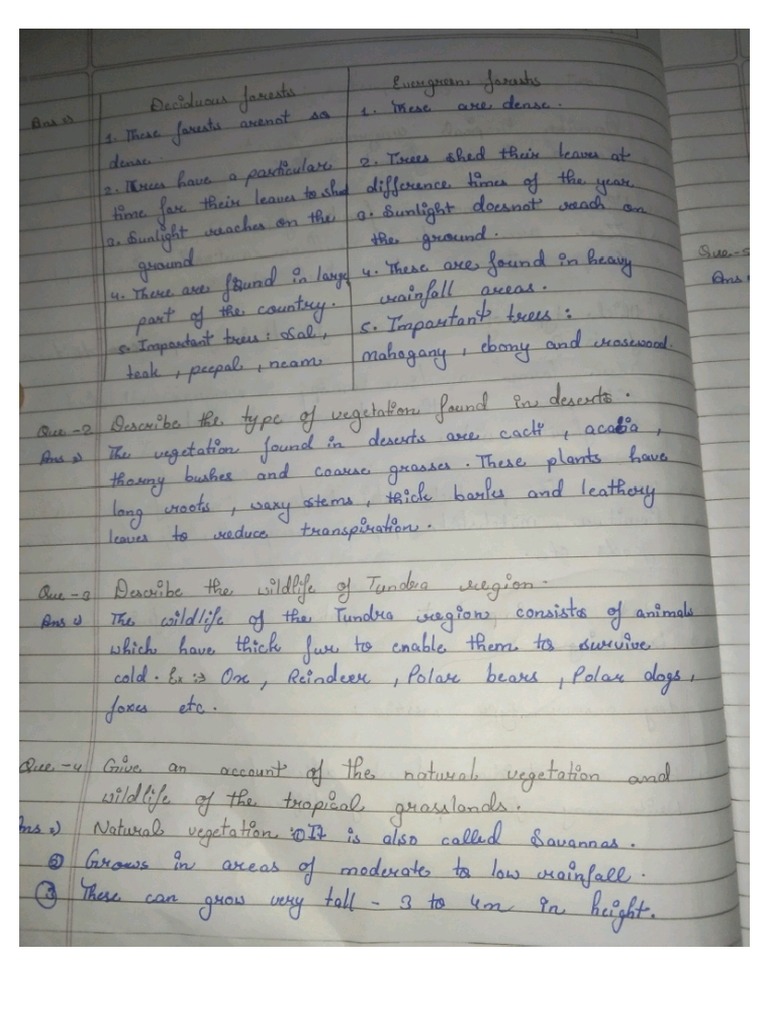 Ans :)
Deciduous forests
1. These forests arenot so
dense.
2. Trees have a particular
time for their leaves to shed
3. Sunlight reaches on the
ground
4. There are found in large
part of the country.
5. Important trees : Sal,
teak, peepal, neam
Evergreen forests
1. These are dense.
2. Trees shed their leaves at
difference times of the year
3. Sunlight doesnot reach on
the ground.
4. These are found in heavy
rainfall areas.
5. Important trees :
mahogany, ebony and rosewood.
Que-2 Describe the type of vegetation found in deserts.
Ans :) The vegetation found in deserts are cacti, acacia,
thorny bushes and coarse grasses. These plants have
long roots, waxy stems, thick barks and leathery
leaves to reduce transpiration.
Que-3 Describe the wildlife of Tundra region.
Ans :) The wildlife of the Tundra region consists of animals
which have thick fur to enable them to survive
cold. Ex :) Ox, Reindeer, Polar bears, Polar dogs,
foxes etc.
Que-4 Give an account of the natural vegetation and
wildlife of the tropical grasslands.
Ans :) Natural vegetation :① It is also called Savannas.
② Grows in areas of moderate to low rainfall.
③ These can grow very tall - 3 to 4m in height.
Que-5
Ans